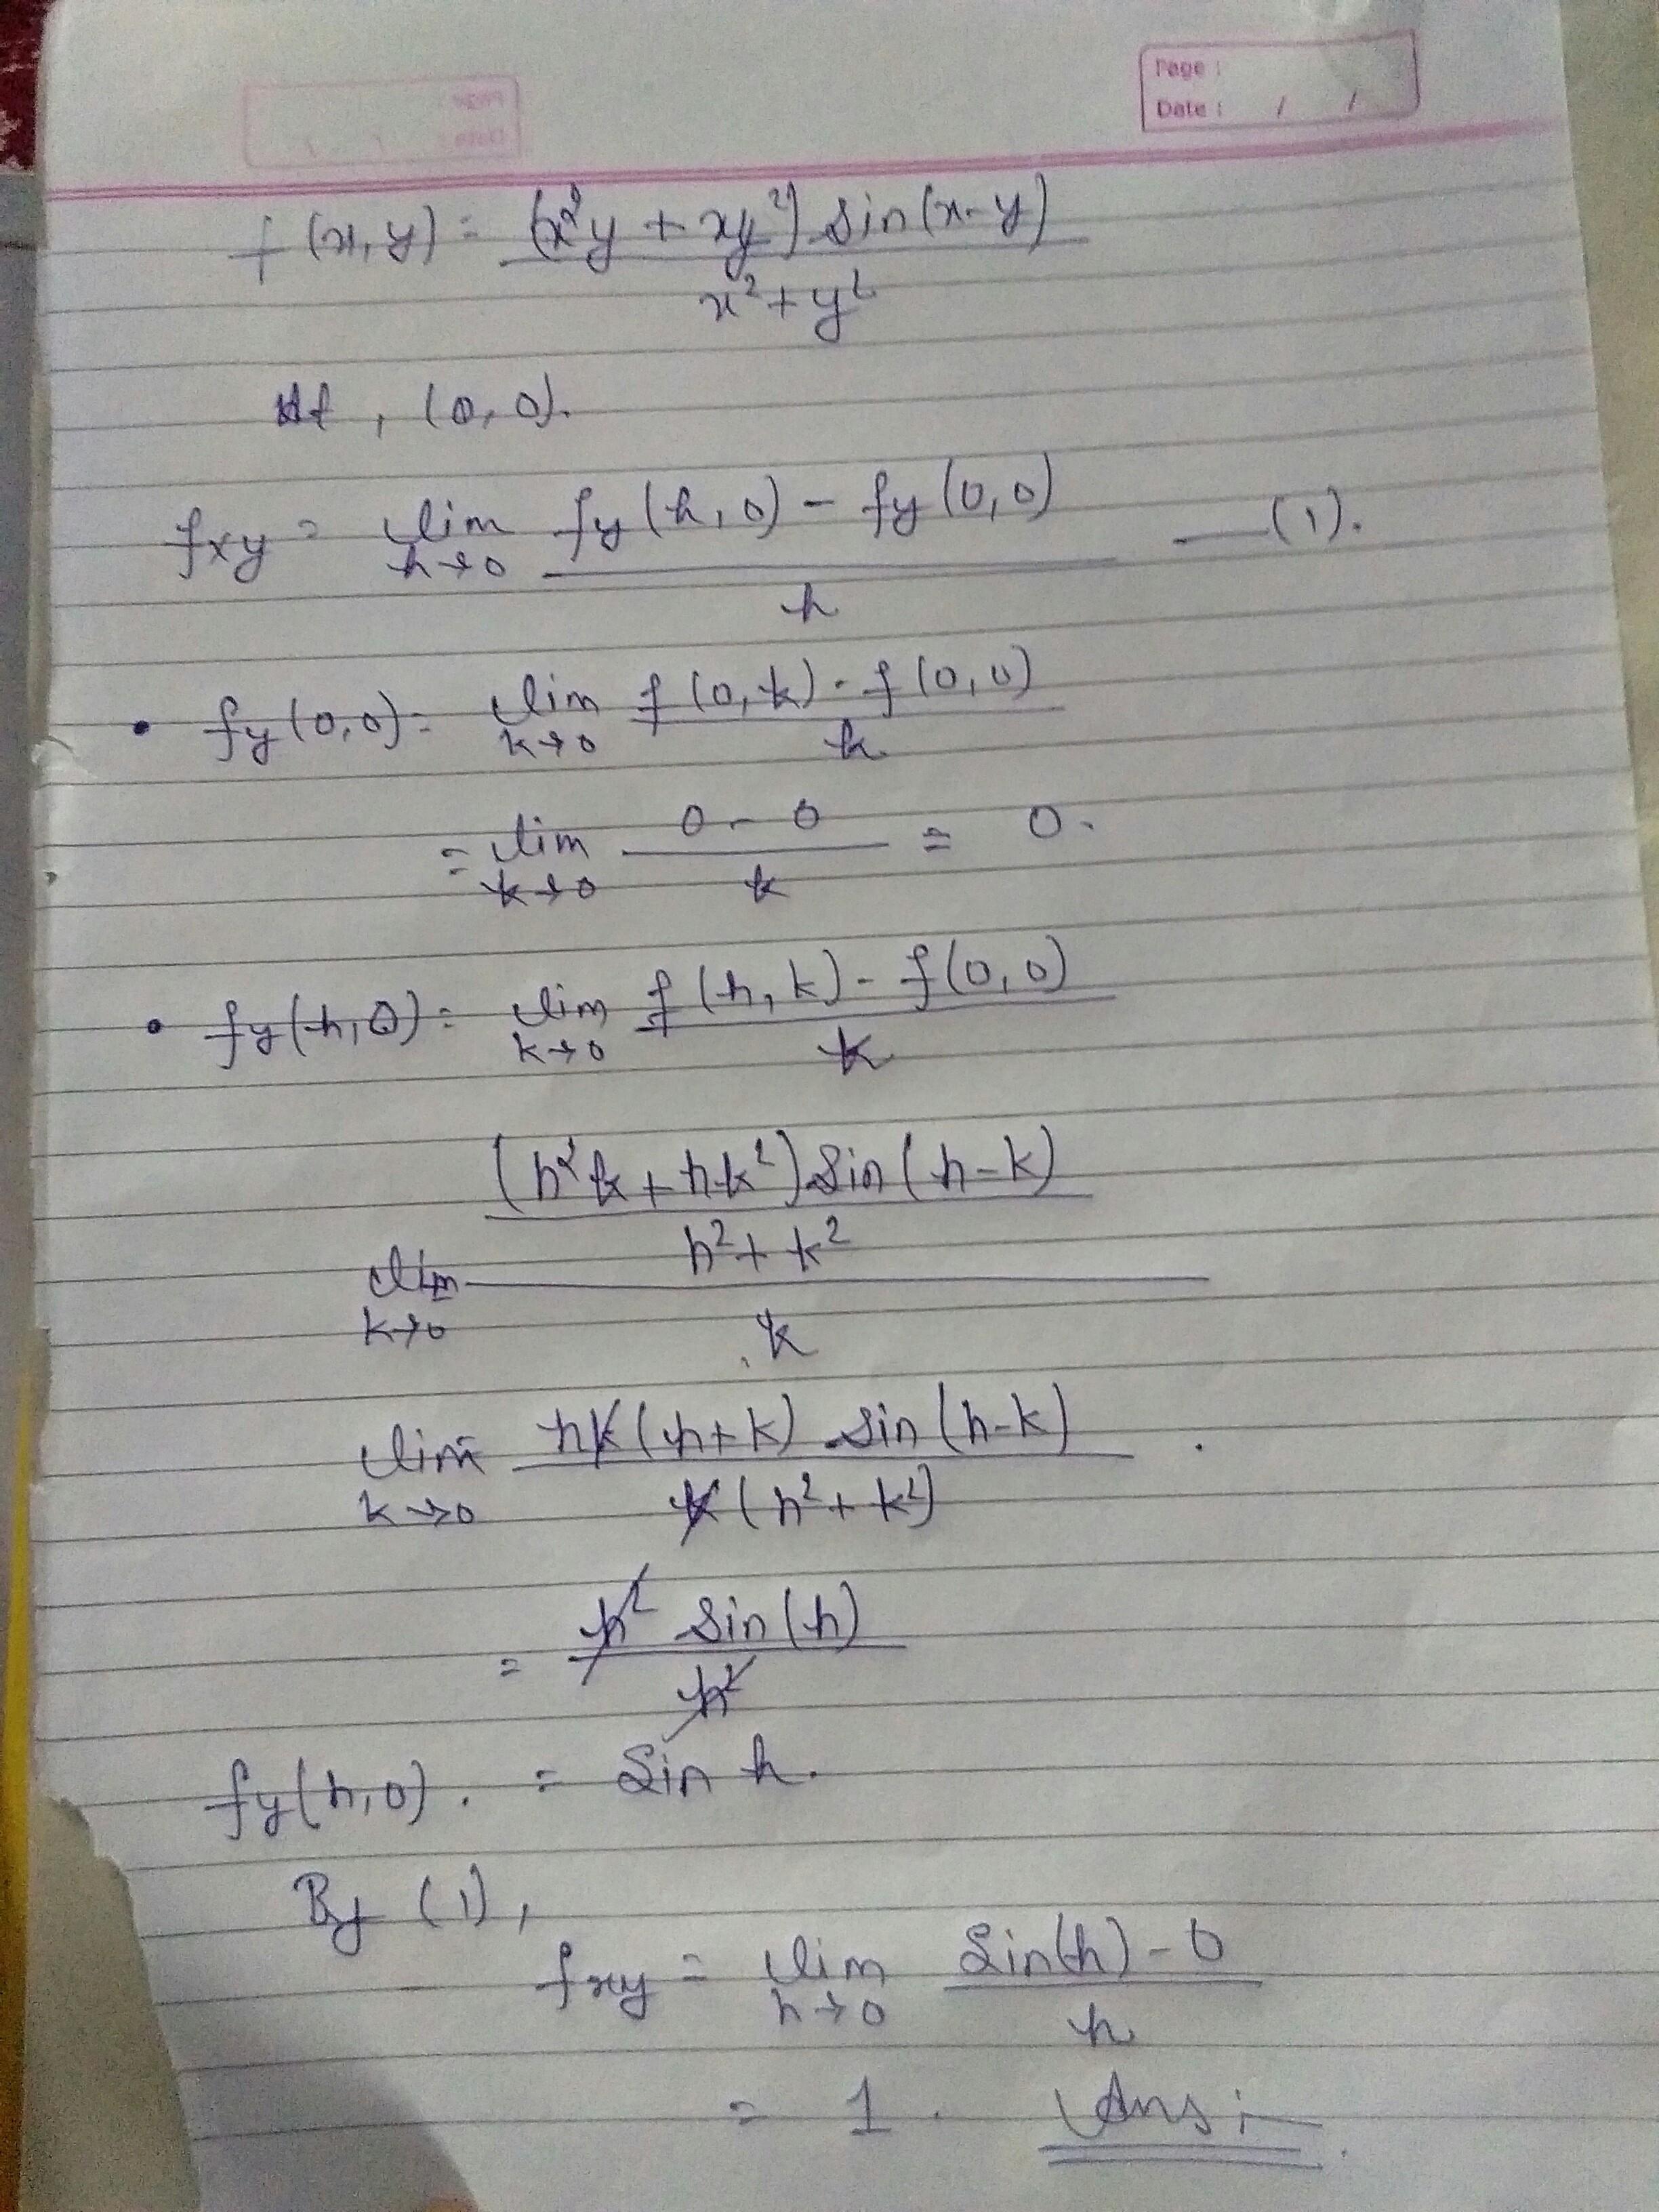 Page :
Date : / /
f(x, y) = (x²y + xy²) sin(x-y)
x² + y²
At, (0, 0).
fxy = lim h→0 fy(h, 0) - fy(0, 0) —(1).
h
• fy(0,0) = lim k→0 f(0, k) - f(0, 0)
k
= lim k→0 0 - 0 = 0.
k
• fy(h, 0) = lim k→0 f(h, k) - f(0, 0)
k
(h²k + hk²) sin(h-k)
h² + k²
lim k→0
k
lim k→0 hk(h+k) sin(h-k)
k(h² + k²)
= h² sin(h)
h²
fy(h, 0). = Sin h.
By (1),
fxy = lim h→0 Sin(h) - 0
h
= 1. Ans;